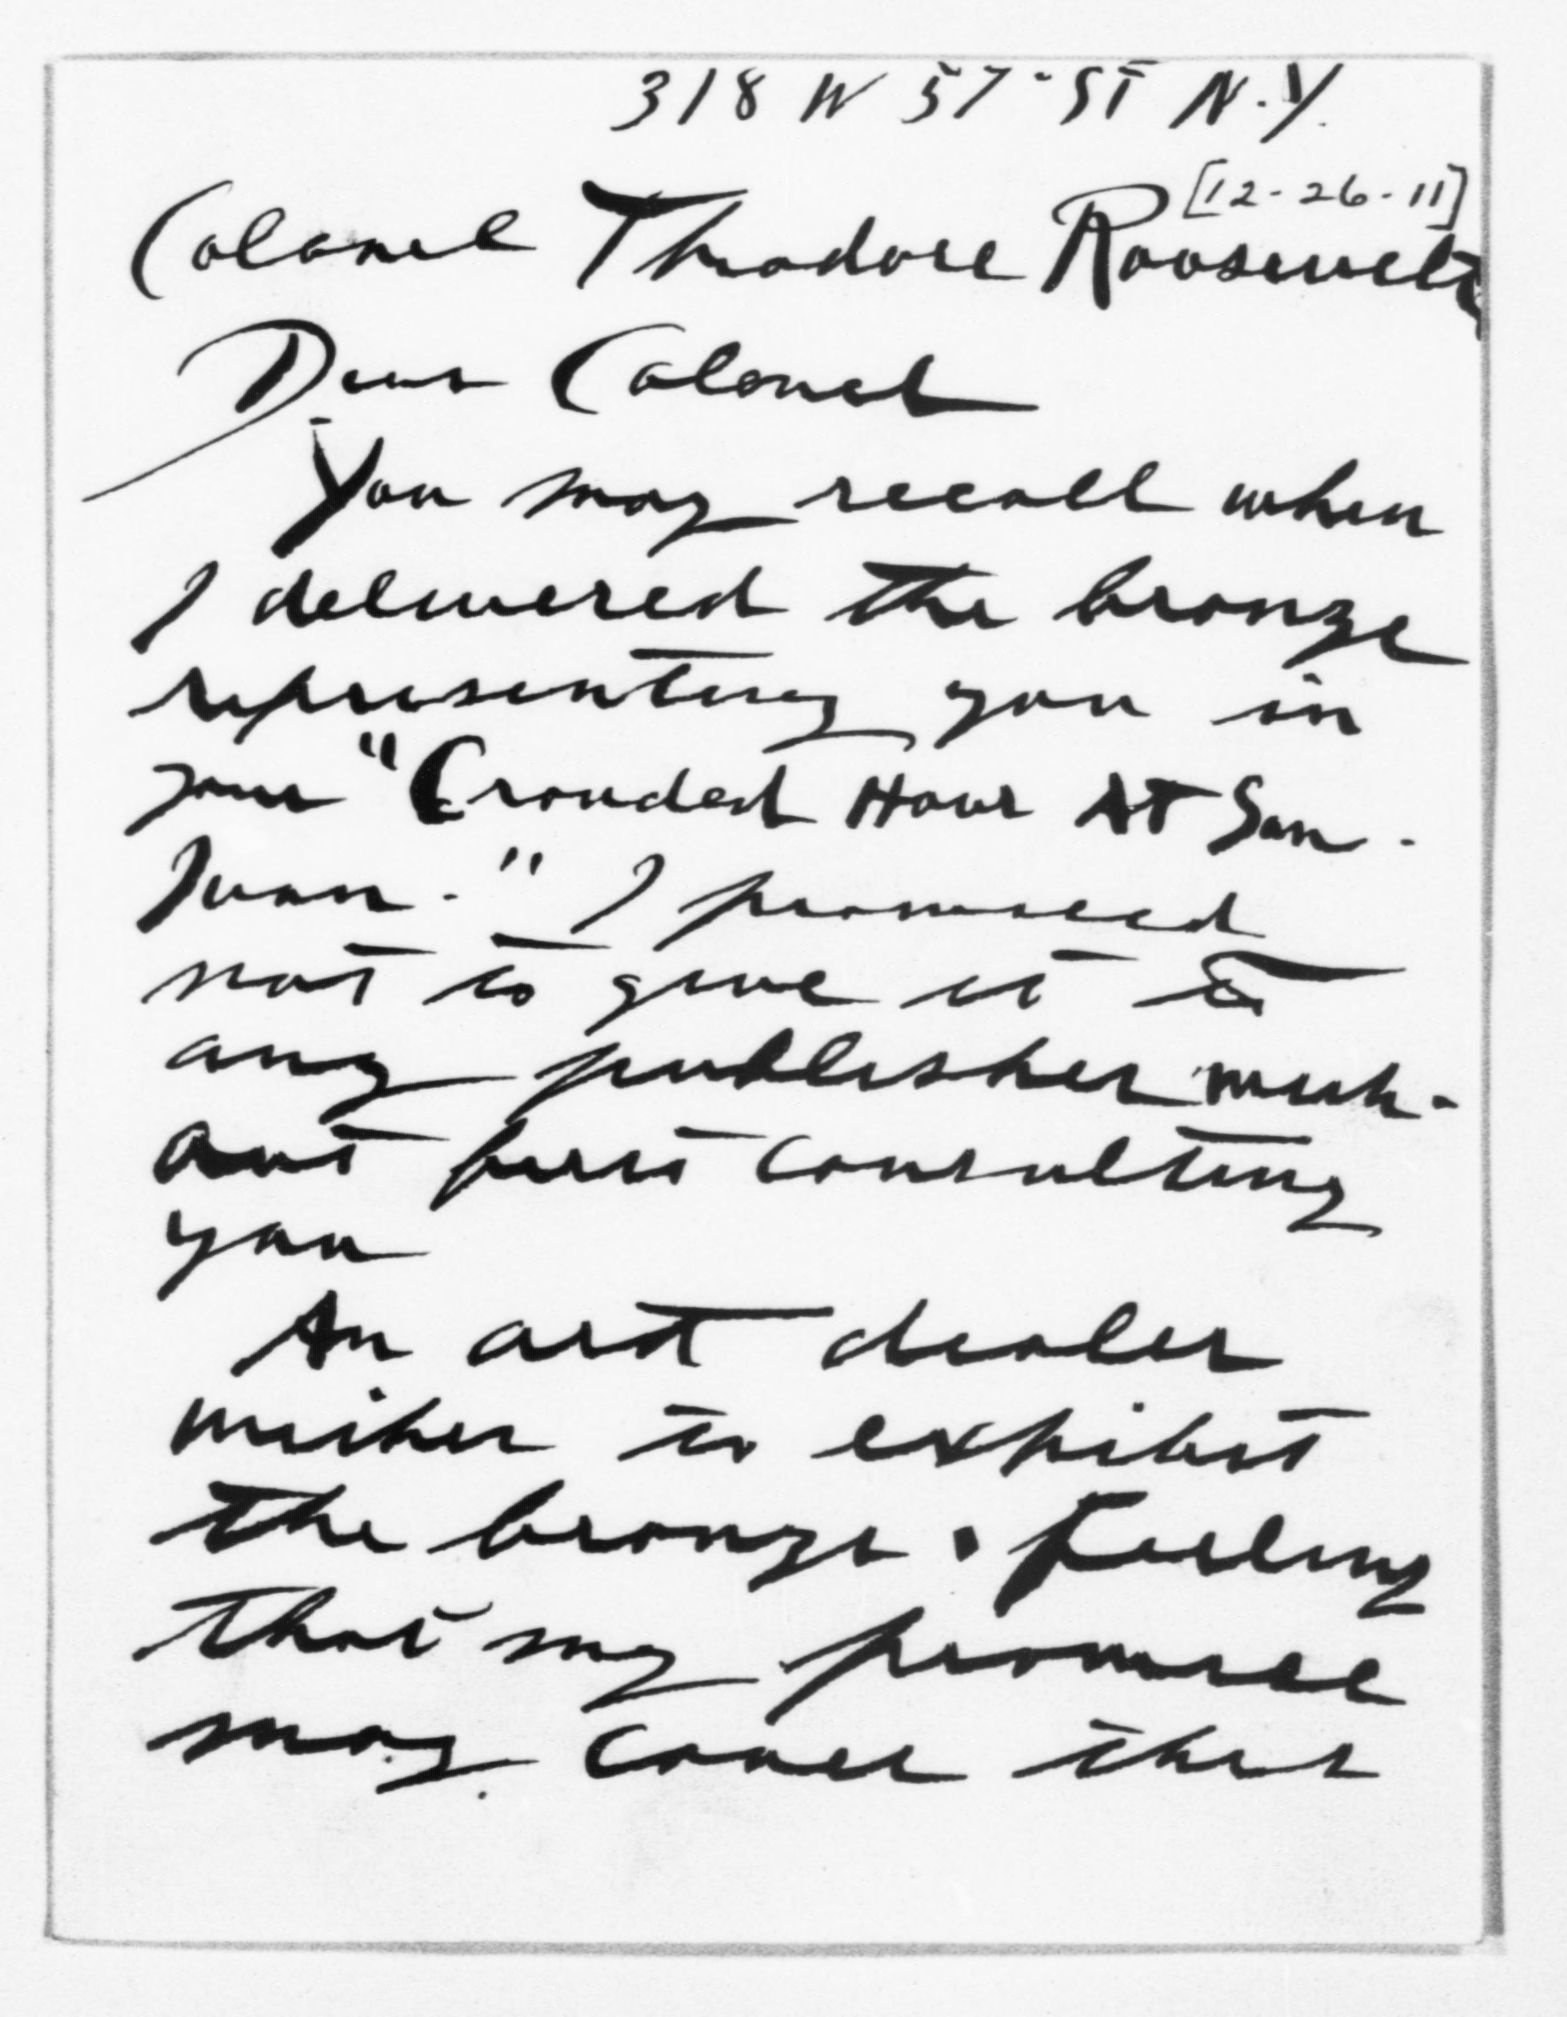 318 W 57 St N.Y.
[12-26-11]
Colonel Theodore Roosevelt
Dear Colonel
You may recall when
I delivered the bronze
representing you in
your "Crowded Hour At San
Juan." I promised
not to give it to
any publisher with-
out first consulting
you
An art dealer
wishes to exhibit
the bronze. Feeling
that my promise
may cover this